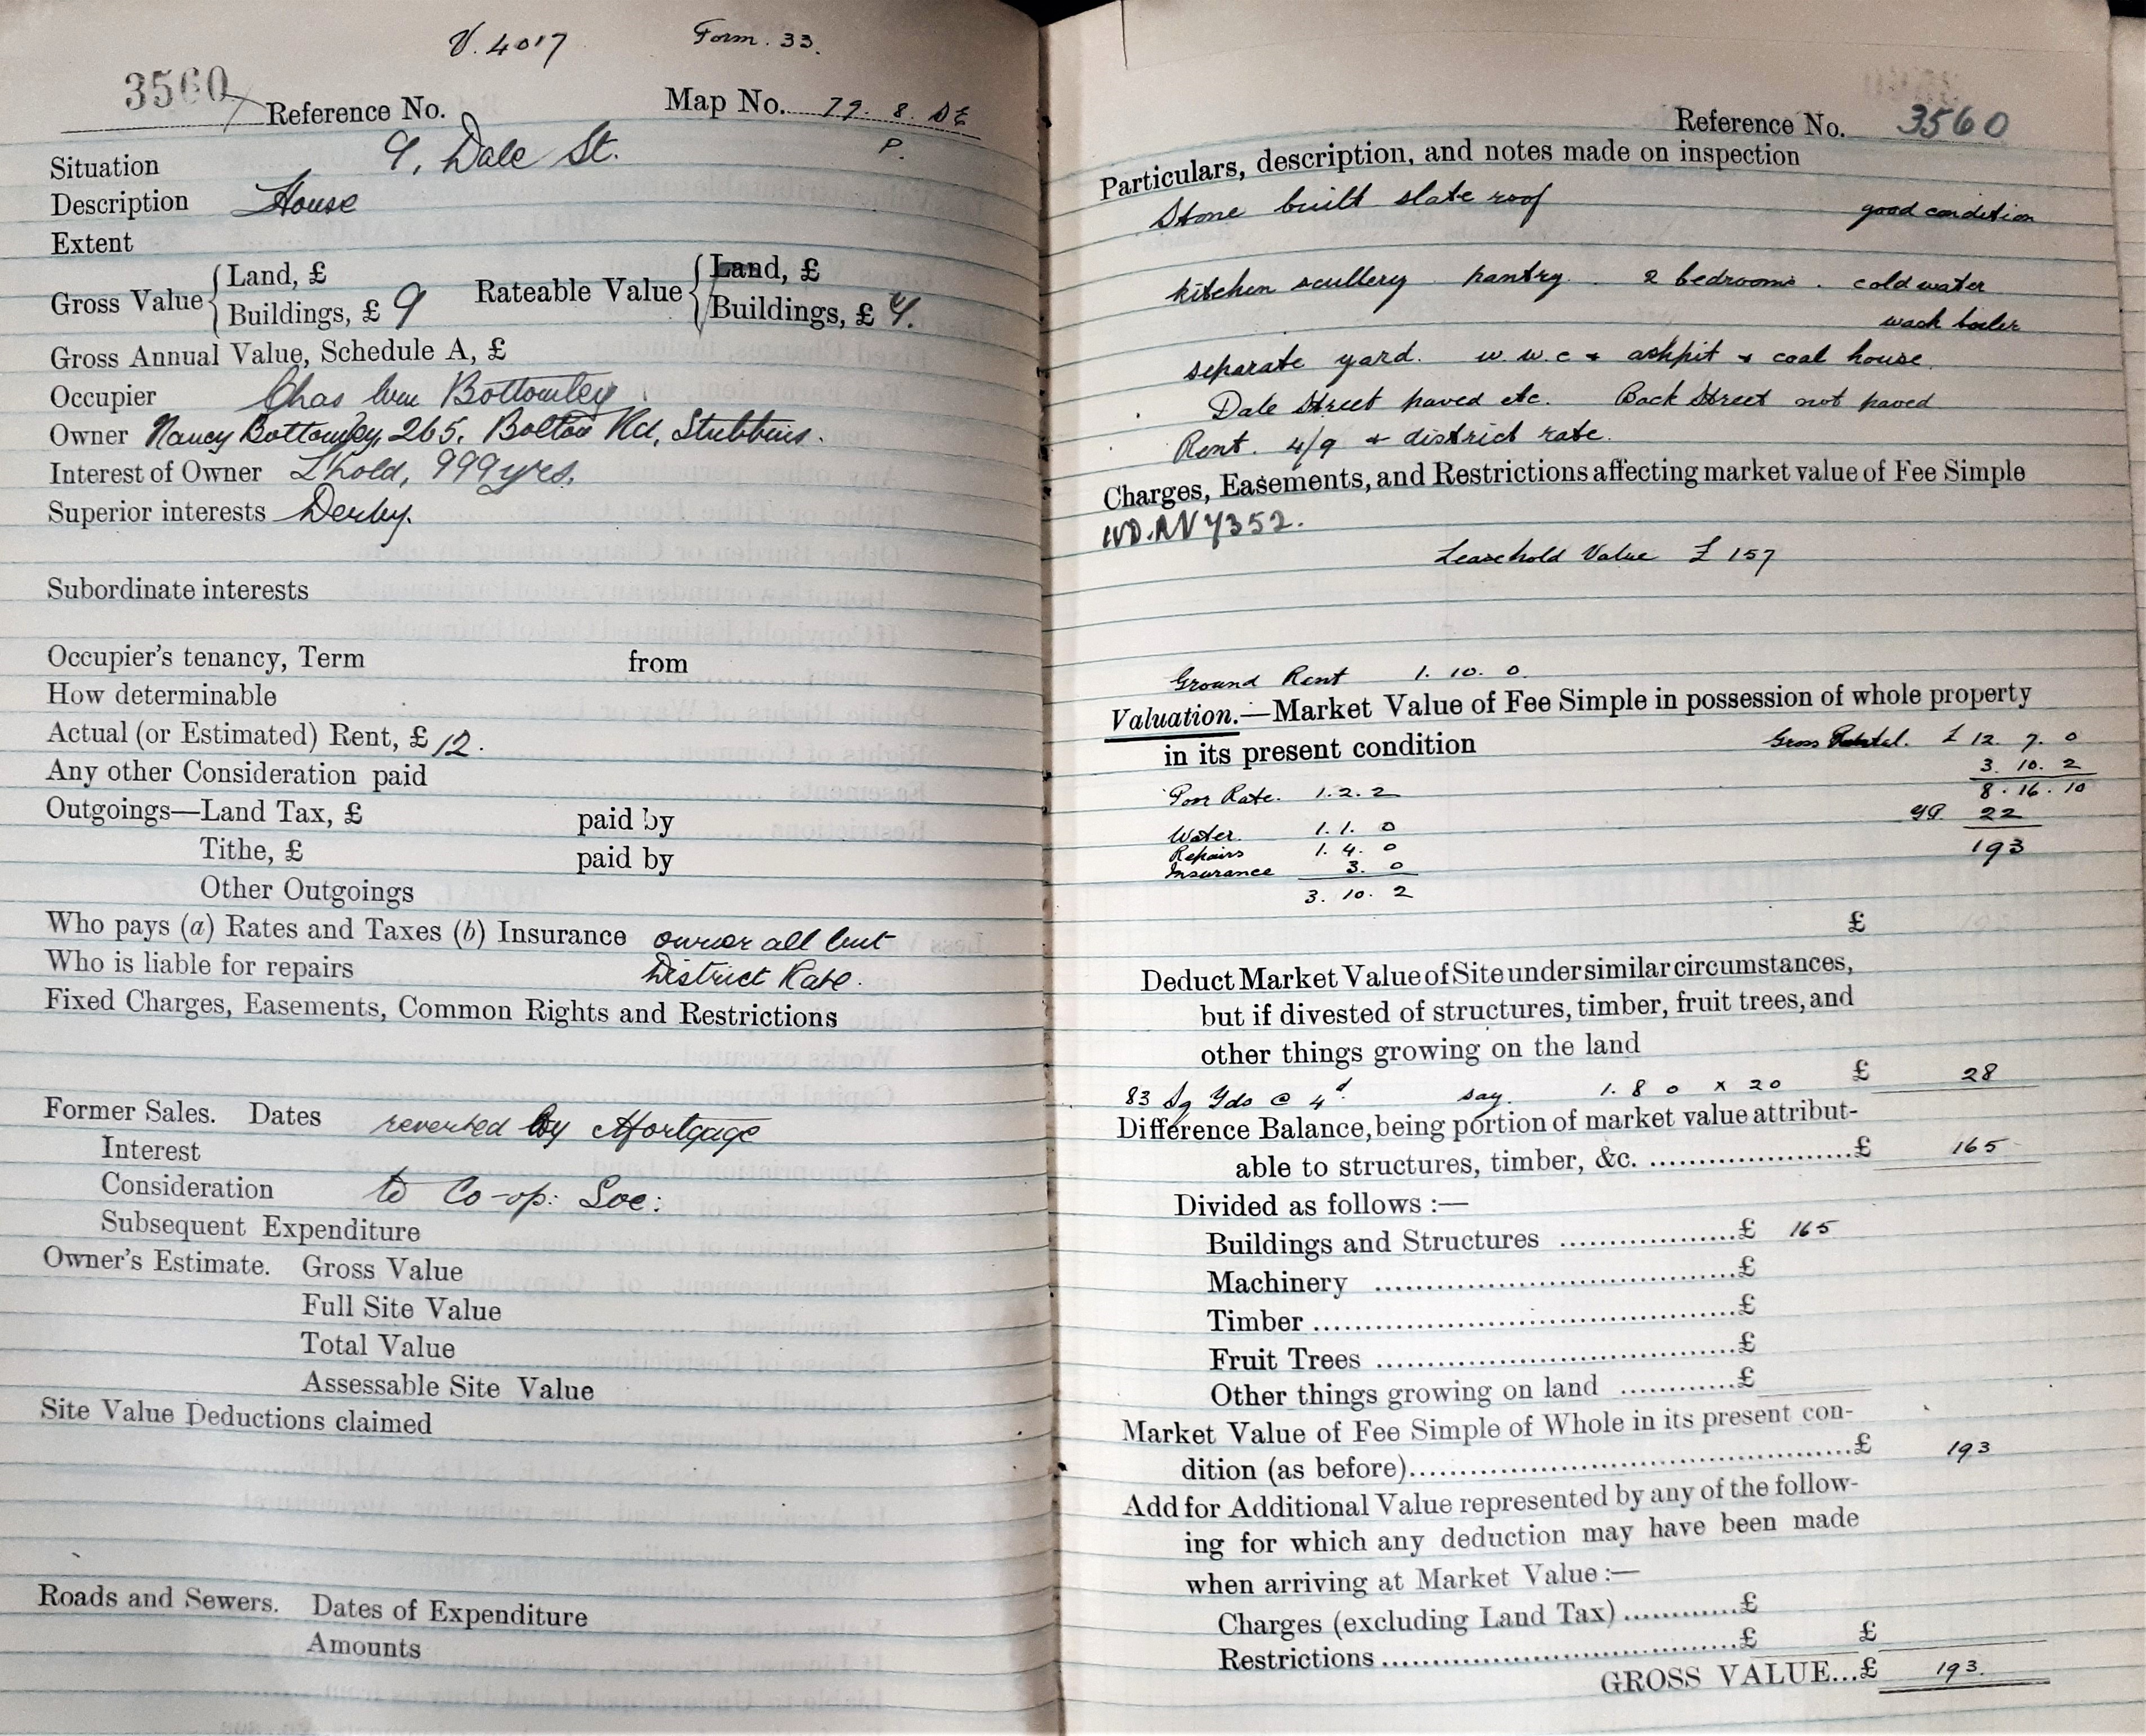 V. 4017 Form. 33.
3560 Reference No. Map No. 79. 8. DE
P.
Situation 9, Dale St.
Description House
Extent
Gross Value { Land, £ Rateable Value { Land, £
Buildings, £ 9 Buildings, £ 7.
Gross Annual Value, Schedule A, £
Occupier Chas Wm Bottomley
Owner Nancy Bottomley, 265, Bolton Rd, Stubbins.
Interest of Owner L'hold, 999 yrs.
Superior interests Derby.
Subordinate interests
Occupier's tenancy, Term from
How determinable
Actual (or Estimated) Rent, £ 12.
Any other Consideration paid
Outgoings—Land Tax, £ paid by
Tithe, £ paid by
Other Outgoings
Who pays (a) Rates and Taxes (b) Insurance owner all but
Who is liable for repairs District Rate.
Fixed Charges, Easements, Common Rights and Restrictions
Former Sales. Dates reverted by Mortgage
Interest
Consideration to Co-op: Soc:
Subsequent Expenditure
Owner's Estimate. Gross Value
Full Site Value
Total Value
Assessable Site Value
Site Value Deductions claimed
Roads and Sewers. Dates of Expenditure
Amounts
Reference No. 3560
Particulars, description, and notes made on inspection
Stone built slate roof good condition
kitchen scullery pantry. 2 bedrooms. cold water
wash boiler
separate yard. w.w.c + ashpit + coal house.
Dale Street paved etc. Back Street not paved
Rent. 4/9 + district rate.
Charges, Easements, and Restrictions affecting market value of Fee Simple
Leasehold Value £ 157
Ground Rent 1. 10. 0.
Valuation.—Market Value of Fee Simple in possession of whole property
in its present condition Gross Rental. £ 12. 7. 0
3. 10. 2
Poor Rate. 1. 2. 2 8. 16. 10
YP. 22
Water. 1. 1. 0
Repairs 1. 4. 0 193
Insurance 3. 0
3. 10. 2
£
Deduct Market Value of Site under similar circumstances,
but if divested of structures, timber, fruit trees, and
other things growing on the land
83 Sq Yds @ 4d. say. 1. 8 0 x 20 £ 28
Difference Balance, being portion of market value attribut-
able to structures, timber, &c. ....................£ 165
Divided as follows :—
Buildings and Structures ..................£ 165
Machinery ....................................£
Timber ..........................................£
Fruit Trees ....................................£
Other things growing on land ............£
Market Value of Fee Simple of Whole in its present con-
dition (as before)............................................£ 193
Add for Additional Value represented by any of the follow-
ing for which any deduction may have been made
when arriving at Market Value :—
Charges (excluding Land Tax) ............£
Restrictions ....................................£ £
GROSS VALUE...£ 193.